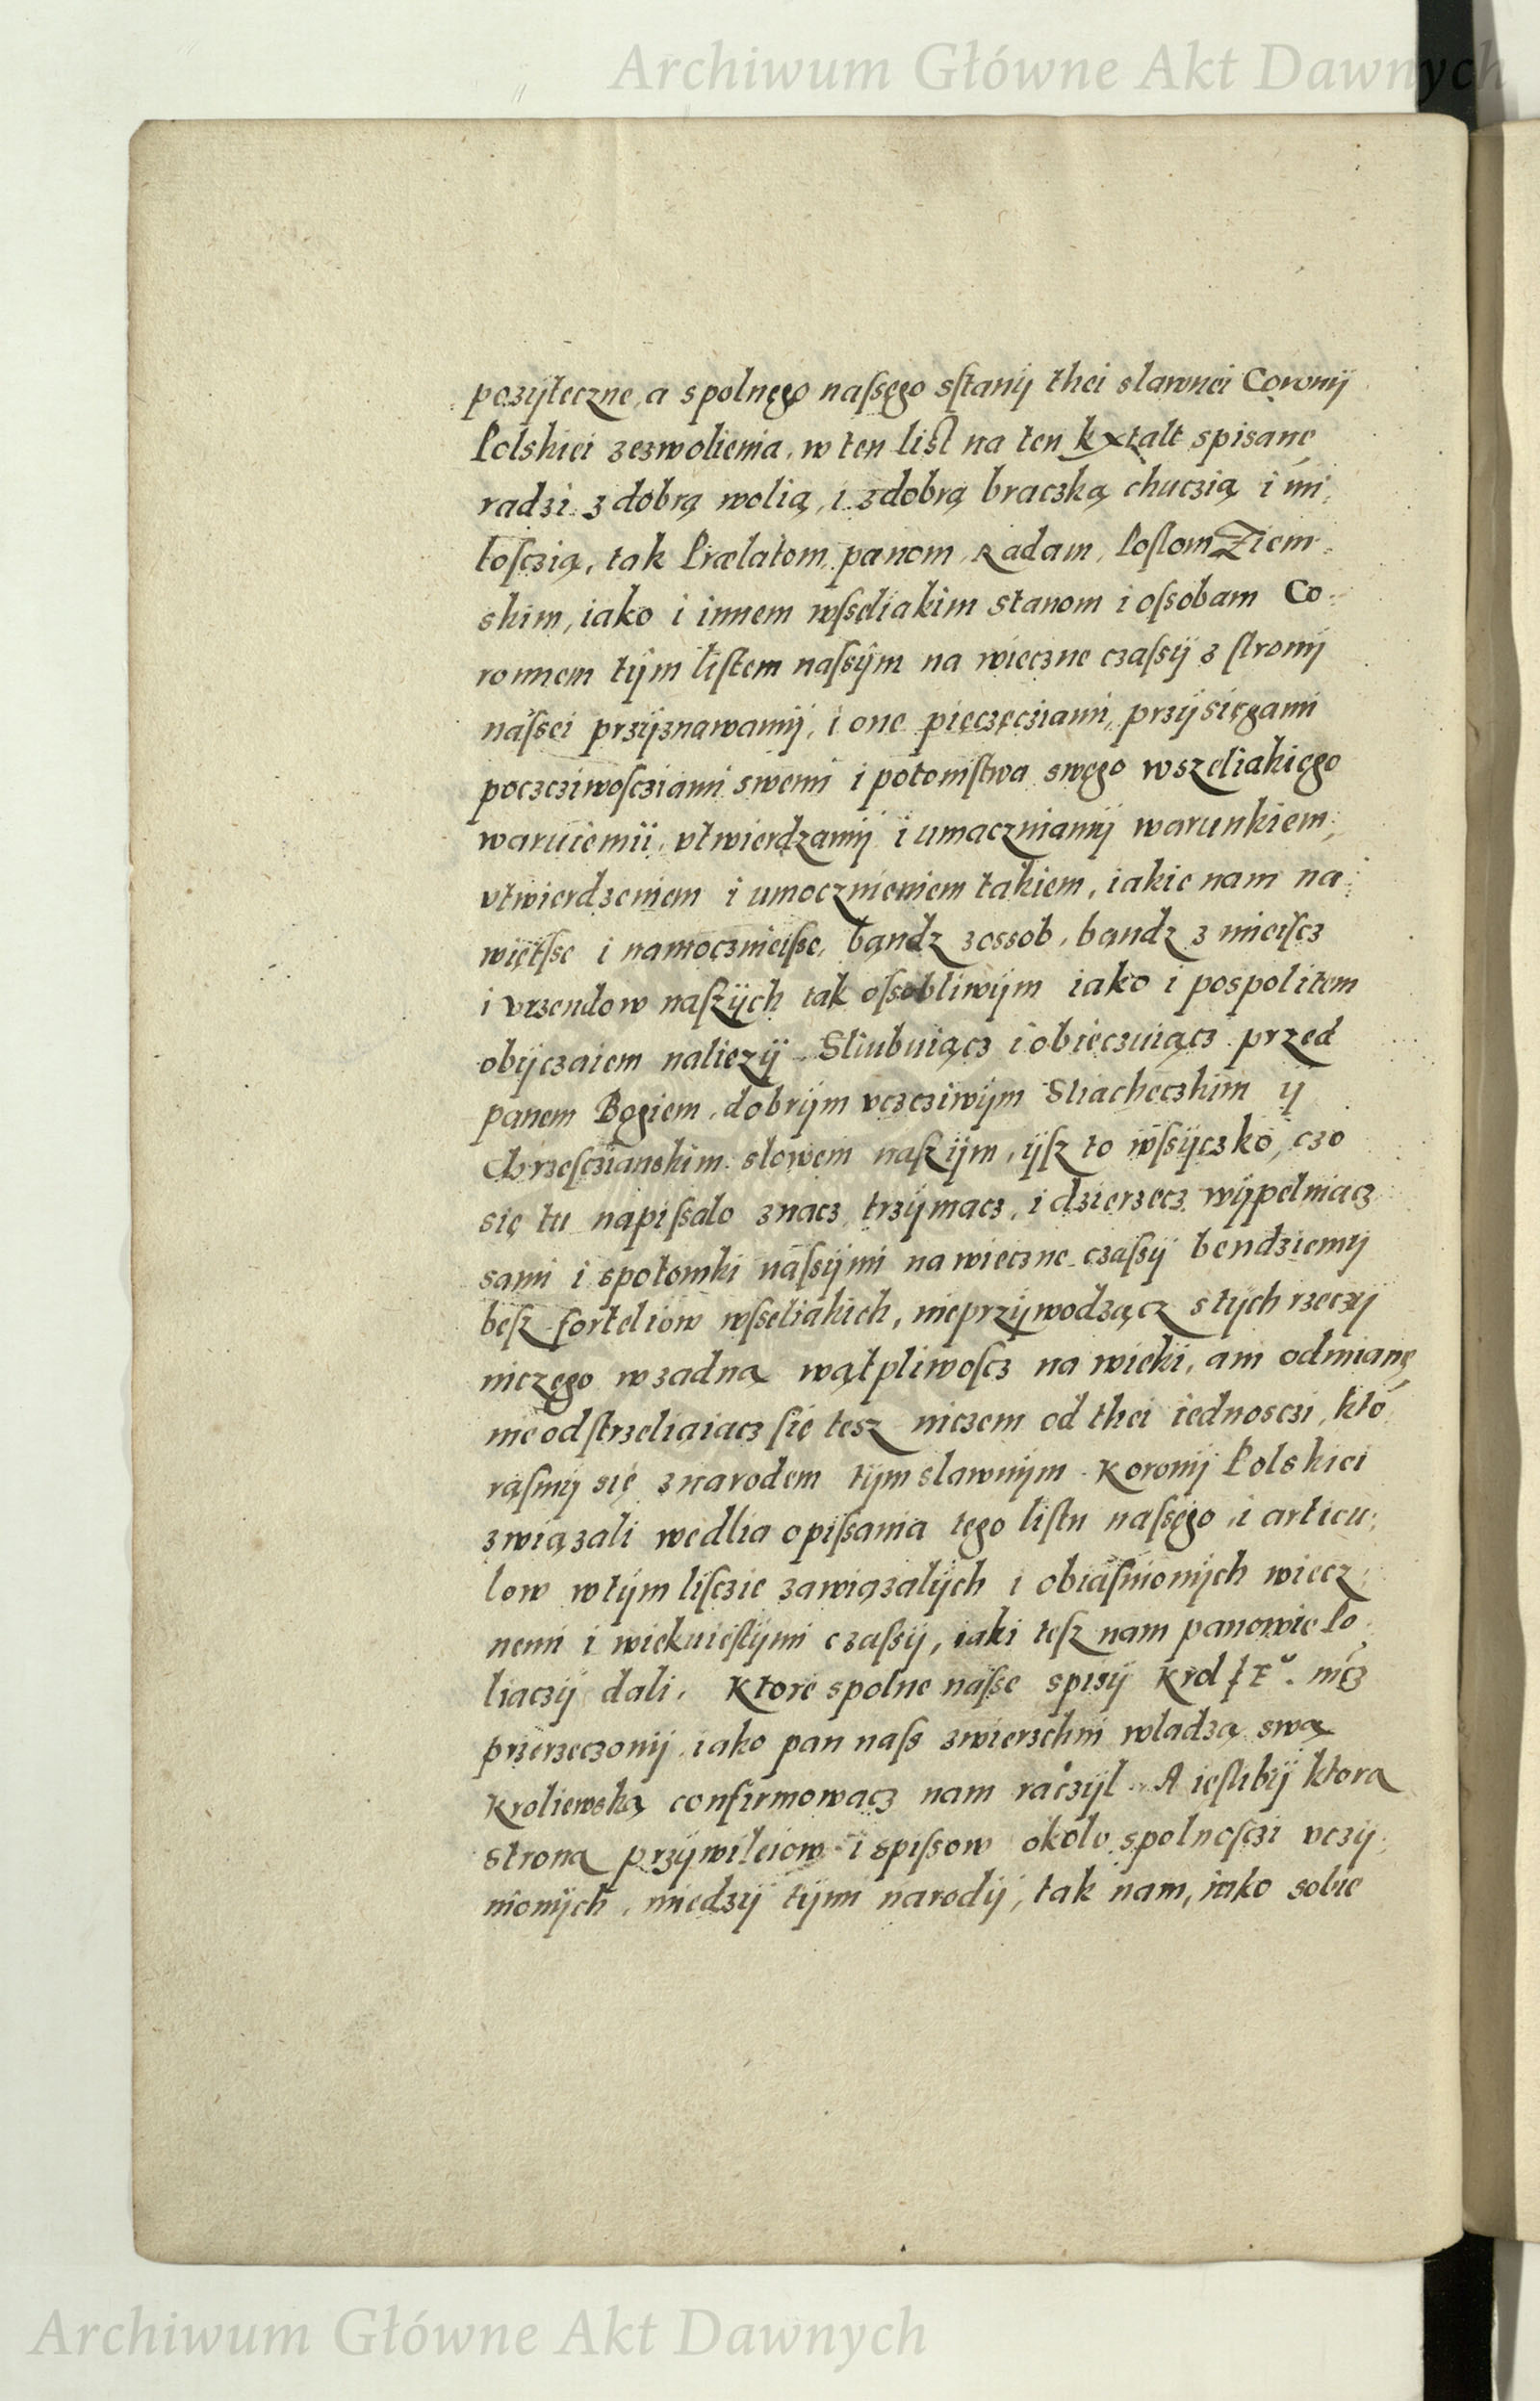 Archiwum Główne Akt Dawnych
pozÿteczne, a spolnęgo naſsęgo sſtanÿ thei slawnei Coronÿ
Polskiei zezwolienia, w ten liſt na ten kxtalt spisanę
radzi z dobrą wolią, i z dobrą braczką chuczią i mi,
łoſczią, tak Prælatom, panom, Radam, Poſlom Ziem-
skim, iako i innem wſseliakim stanom i oſsobam Co-
ronnem tÿm liſtem naſsÿm na wieczne czaſsÿ z ſtronÿ
naſsei przÿznawamÿ, i one pięczęcziami, przÿsięgami
poczcziwoſcziami swemi i potomſtwa swęgo wszeliakięgo
waruiemÿ, vtwierdzamÿ i umaczniamÿ warunkiem,
vtwierdzeniem i umocznieniem takiem, iakie nam na
więtſse i namocznieiſse, bandz zossob, bandz z mieiſcz
i vrzendow naſzÿch tak oſsobliwÿm iako i pospolitem
obÿczaiem nalieży. Sliubuiącz i obieczuiącz przed
panem Bogiem, dobrÿm vczcziwÿm Sliacheczkim ÿ
Chrzeſczianskim slowem naſzÿm, ÿſz to wſsÿczko, czo
się tu napiſsalo znacz, trzÿmacz, i dzierzecz wÿpelniacz
sami i spotomki naſsÿmi na wieczne czaſsÿ bendziemÿ
beſz forteliow wſseliakich, nieprzÿwodzącz s tÿch rzeczÿ
niczęgo w zadną wątpliwoſcz na wieki, ani odmianę,
nie odſtrzeliaiacz ſię tesz niczem od thei iednosczi, kto
raſmÿ się z narodem tÿm slawnÿm Koronÿ Polskiei
związali wedlia opiſsania tego liſtu naſsęgo i articu,
low w tÿm liſczie zawiązalÿch i obiaſnionÿch wiecz,
nemi i wiekuiſtÿmi czaſsÿ, iaki teſz nam panowie Po
liaczÿ dali. Ktore spolne naſse spisÿ Krol
przerzeczonÿ, iako pan naſs zwierzchni wladzą swą
Kroliewską confirmowacz nam raczÿl. A ieſlibÿ ktora
strona przÿwileiow i spiſsow okolo spolnoſczi vczÿ,
nionÿch, miedzÿ tÿmi narodÿ, tak nam, iako sobie
Archiwum Główne Akt Dawnych